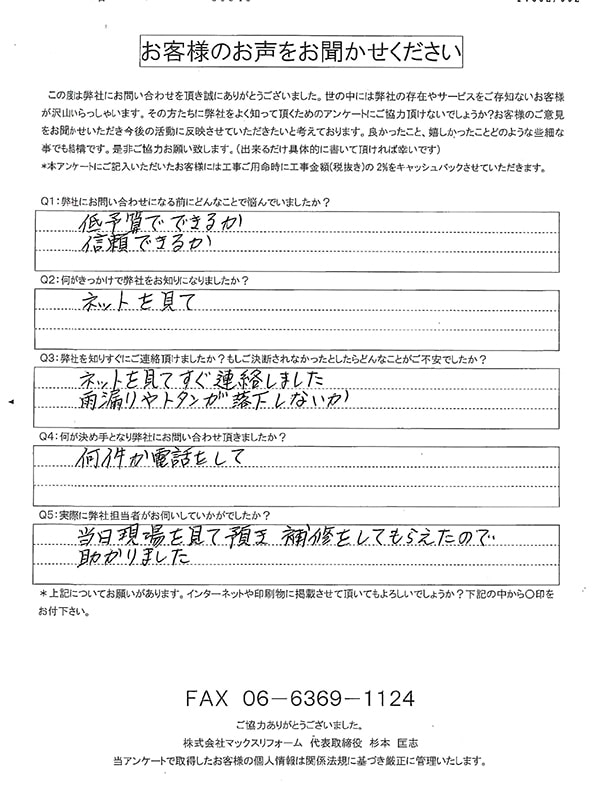 お客様のお声をお聞かせください
この度は弊社にお問い合わせを頂き誠にありがとうございました。世の中には弊社の存在やサービスをご存知ないお客様
が沢山いらっしゃいます。その方たちに弊社をよく知って頂くためのアンケートにご協力頂けないでしょうか？お客様のご意見
をお聞かせいただき今後の活動に反映させていただきたいと考えております。良かったこと、嬉しかったことどのような些細な
事でも結構です。是非ご協力お願い致します。（出来るだけ具体的に書いて頂ければ幸いです）
*本アンケートにご記入いただいたお客様には工事ご用命時に工事金額（税抜き）の2％をキャッシュバックさせていただきます。
Q1：弊社にお問い合わせになる前にどんなことで悩んでいましたか？
低予算でできるか
信頼できるか
Q2：何がきっかけで弊社をお知りになりましたか？
ネットを見て
Q3：弊社を知りすぐにご連絡頂けましたか？もしご決断されなかったとしたらどんなことがご不安でしたか？
ネットを見てすぐ連絡しました
雨漏りやトタンが落下しないか
Q4：何が決め手となり弊社にお問い合わせ頂きましたか？
何件か電話をして
Q5：実際に弊社担当者がお伺いしていかがでしたか？
当日現場を見て預き 補修をしてもらえたので
助かりました
＊上記についてお願いがあります。インターネットや印刷物に掲載させて頂いてもよろしいでしょうか？下記の中から〇印を
お付下さい。
FAX 06－6369－1124
ご協力ありがとうございました。
株式会社マックスリフォーム 代表取締役 杉本 匡志
当アンケートで取得したお客様の個人情報は関係法規に基づき厳正に管理いたします。